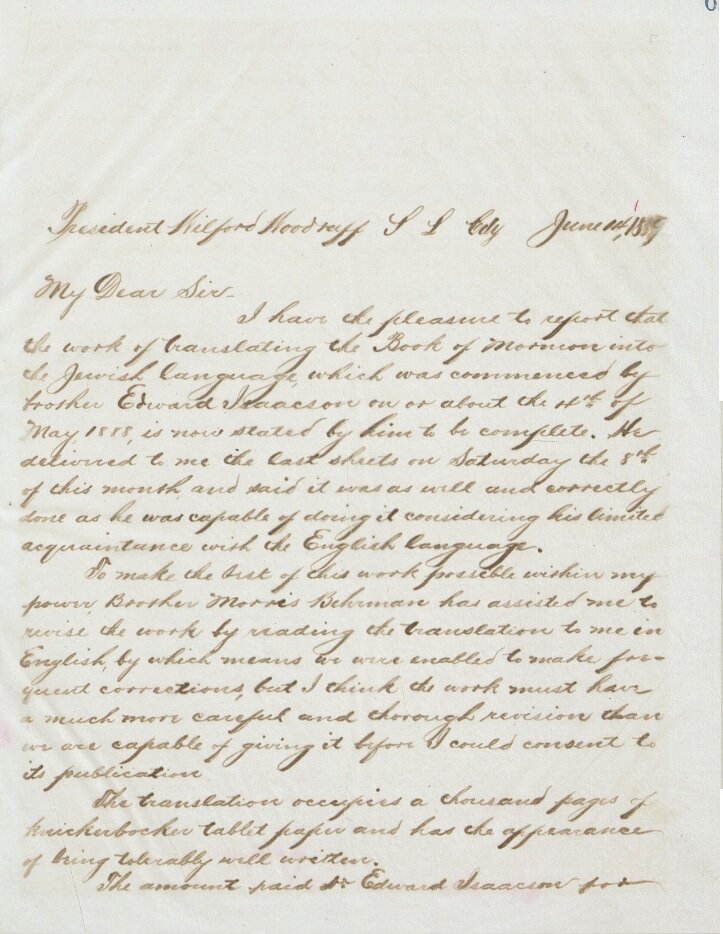 President Wilford Woodruff S L City June 14, 1889
My Dear Sir-
I have the pleasure to report that
the work of translating the Book of Mormon into
the Jewish language, which was commenced by
brother Edward Isaacson on or about the 4th of
May 1888, is now stated by him to be complete. He
delivered to me the last sheets on Saturday the 8th
of this month and said it was as well and correctly
done as he was capable of doing it considering his limited
acquaintance with the English language.
To make the best of this work possible within my
power, Brother Morris Behrman has assisted me to
revise the work by reading the translation to me in
English, by which means we were enabled to make fre-
quent corrections, but I think the work must have
a much more careful and thorough revision than
we are capable of giving it before I could consent to
its publication
The translation occupies a thousand pages of
Knickerbocker tablet paper and has the appearance
of being tolerably well written.
The amount paid Edward Isaacson for